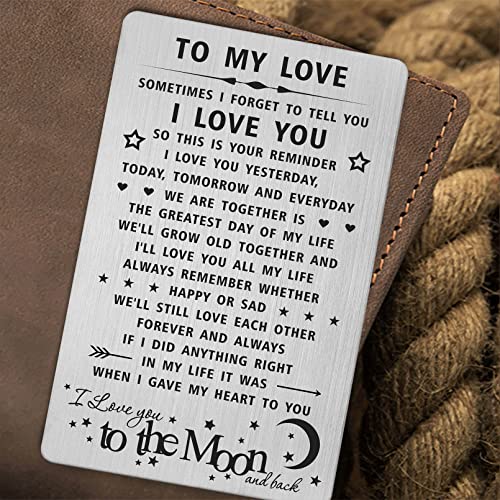 TO MY LOVE
SOMETIMES I FORGET TO TELL YOU
I LOVE YOU
SO THIS IS YOUR REMINDER
I LOVE YOU YESTERDAY,
TODAY, TOMORROW AND EVERYDAY
WE ARE TOGETHER IS
THE GREATEST DAY OF MY LIFE
WE'LL GROW OLD TOGETHER AND
I'LL LOVE YOU ALL MY LIFE
ALWAYS REMEMBER WHETHER
HAPPY OR SAD
WE'LL STILL LOVE EACH OTHER
FOREVER AND ALWAYS
IF I DID ANYTHING RIGHT
IN MY LIFE IT WAS
WHEN I GAVE MY HEART TO YOU
I Love you
to the Moon
and back